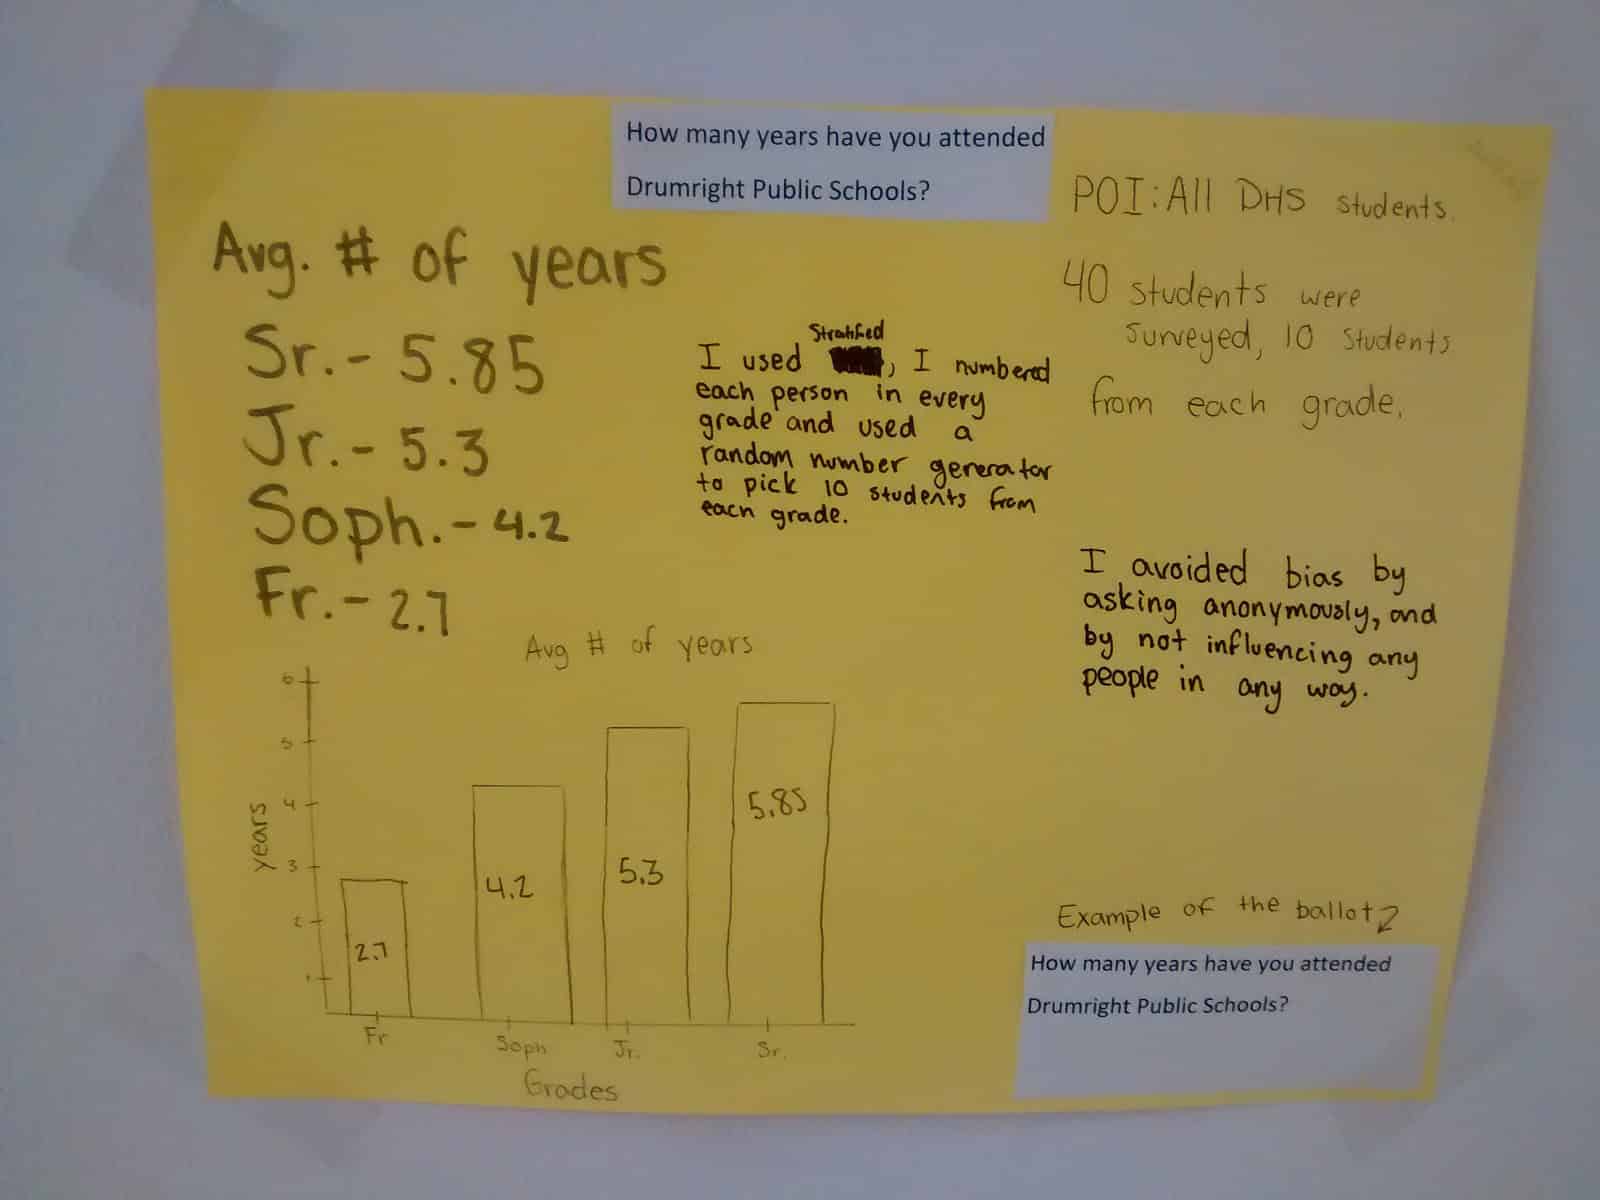 How many years have you attended
Drumright Public Schools?
Avg. # of years
Sr.- 5.85
Jr.- 5.3
Soph.- 4.2
Fr.- 2.7
Stratified
I used , I numbered
each person in every
grade and used a
random number generator
to pick 10 students from
each grade.
POI: All DHS students.
40 students were
surveyed, 10 students
from each grade.
I avoided bias by
asking anonymously, and
by not influencing any
people in any way.
Avg # of years
6
5
4
3
2
1
years
2.7
4.2
5.3
5.85
Fr
Soph
Jr.
Sr.
Grades
Example of the ballot
How many years have you attended
Drumright Public Schools?